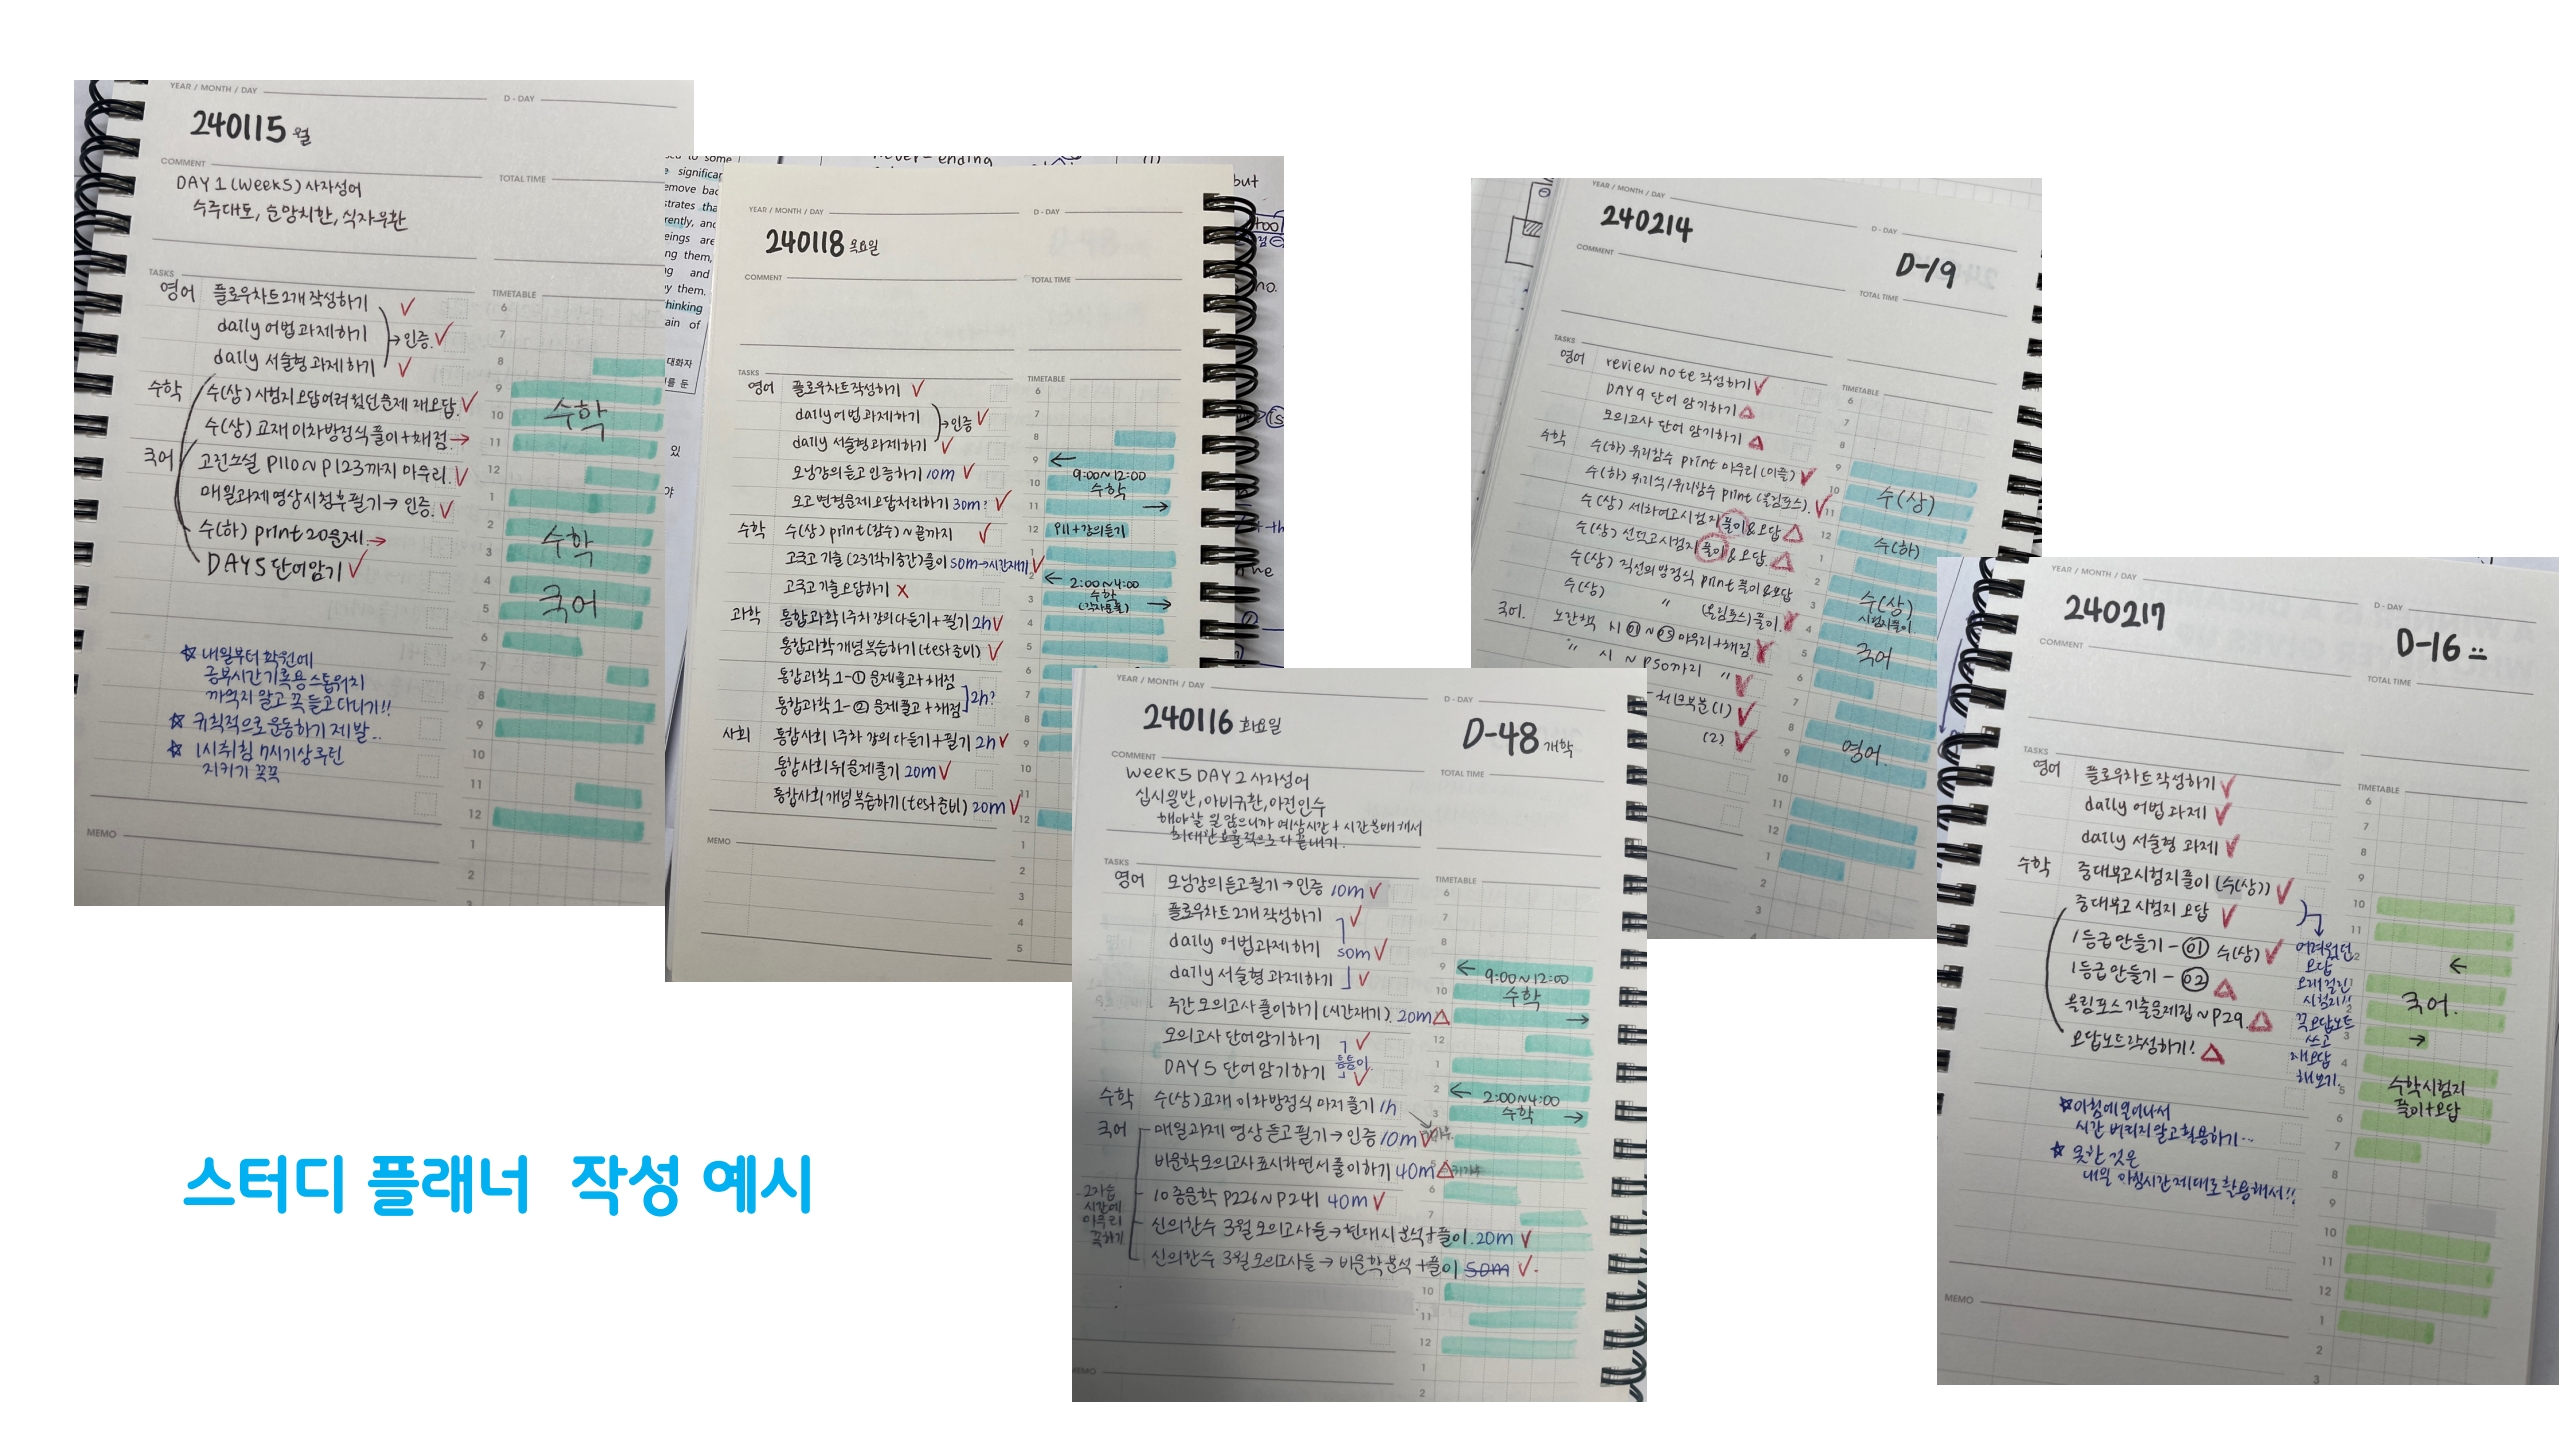 YEAR / MONTH / DAY
D - DAY
240115 월
COMMENT
TOTAL TIME
DAY 1 (Week5) 사자성어
수주대토, 순망치한, 식자우환
TASKS
TIMETABLE
영어 플로우차트 2개 작성하기
daily 어법 과제하기 → 인증.
daily 서술형 과제하기
수학 수(상) 시험지 오답 어려웠던 문제 재오답.
수(상) 교재 이차방정식 풀이+채점 →
국어 고전소설 P110 ~ P123까지 마무리.
매일과제 영상시청후 필기 → 인증.
수(하) print 20문제. →
DAY5 단어암기
☆ 내일부터 학원에
공부시간 기록용 스톱워치
까먹지 말고 꼭 들고다니기!!
☆ 규칙적으로 운동하기 제발..
☆ 1시취침 7시기상 루틴
지키기 꼭꼭
MEMO
6
7
8
9
10
11
12
1
2
3
4
5
6
7
8
9
10
11
12
1
2
수학
수학
국어
YEAR / MONTH / DAY
D - DAY
240118 목요일
COMMENT
TOTAL TIME
TASKS
TIMETABLE
영어 플로우차트 작성하기
daily 어법 과제하기 → 인증
daily 서술형 과제하기
모닝강의 듣고 인증하기 10m
모고 변형문제 오답처리하기 30m?
수학 수(상) print (함수) ~ 끝까지
고잔고 기출 (23 1학기중간) 풀이 50m → 시간재기
고잔고 기출 오답하기 X
과학 통합과학 1주차 강의 다듣기 + 필기 2h
통합과학 개념 복습하기 (test 준비)
통합과학 1-① 문제풀고 + 채점
통합과학 1-② 문제풀고 + 채점 2h?
사회 통합사회 1주차 강의 다듣기 + 필기 2h
통합사회 뒤 문제풀기 20m
통합사회 개념 복습하기 (test 준비) 20m
MEMO
6
7
8
9
10
11
12
1
2
3
4
5
6
7
8
9
10
11
12
1
2
3
4
5
←
9:00~12:00
수학
→
P11 + 강의듣기
← 2:00~4:00
수학
→
YEAR / MONTH / DAY
D - DAY
240116 화요일
D-48 개학
COMMENT
TOTAL TIME
Week5 DAY2 사자성어
십시일반, 아비규환, 아전인수
해야할 일 많으니까 예상시간 + 시간분배 해서
최대한 효율적으로 다 끝내기.
TASKS
TIMETABLE
영어 모닝강의 듣고 필기 → 인증 10m
플로우차트 2개 작성하기
daily 어법과제하기 50m
daily 서술형 과제하기
주간 모의고사 풀이하기 (시간재기). 20m
모의고사 단어 암기하기
DAY5 단어 암기하기 틈틈이.
수학 수(상) 교재 이차방정식 마저 풀기 1h
국어 매일과제 영상 듣고 필기 → 인증 10m
비문학 모의고사 표시하면서 풀이하기 40m
10종문학 P226~P241 40m
신의한수 3월 모의고사들 → 현대시 분석+풀이. 20m
신의한수 3월 모의고사들 → 비문학 분석+풀이 50m
시간에
마무리
꼭하기
MEMO
6
7
8
9
10
12
1
2
3
6
7
10
11
12
1
2
← 9:00~12:00
수학
→
← 2:00~4:00
수학 →
YEAR / MONTH / DAY
D - DAY
240214
D-19
COMMENT
TOTAL TIME
TASKS
TIMETABLE
영어 review note 작성하기
DAY9 단어 암기하기
모의고사 단어 암기하기
수학 수(하) 유리함수 print 마무리 (이플)
수(하) 유리식/유리함수 print (올림포스).
수(상) 세화여고시험지 풀이&오답
수(상) 선덕고시험지 풀이&오답.
수(상) 직선의방정식 print 풀이&오답
수(상) 〃 (올림포스) 풀이.
국어. 노란책 시 01 ~ 03 마무리+채점.
〃 시 ~ P50까지 〃
체크부분 (1)
(2)
6
7
8
9
10
11
12
1
2
3
4
5
6
7
8
9
10
11
12
1
2
3
4
수(상)
수(하)
수(상)
시험지풀이
국어
영어.
YEAR / MONTH / DAY
D - DAY
240217
D-16
COMMENT
TOTAL TIME
TASKS
TIMETABLE
영어 플로우차트 작성하기
daily 어법 과제
daily 서술형 과제
수학 중대부고시험지 풀이 (수(상))
중대부고 시험지 오답
1등급 만들기 - 01 수(상)
1등급 만들기 - 02
올림포스 기출문제집 ~ P29.
오답노트작성하기!
어려웠던
오답
오래걸린
시험지!!
꼭 오답노트
쓰고
재오답
해보기.
☆ 아침에 일어나서
시간 버리지 말고 활용하기...
☆ 못한 것은
내일 아침시간 제대로 활용해서!!
MEMO
6
7
8
9
10
11
2
3
4
5
6
7
8
9
10
11
12
1
2
3
←
국어.
→
수학시험지
풀이+오답
스터디 플래너 작성 예시